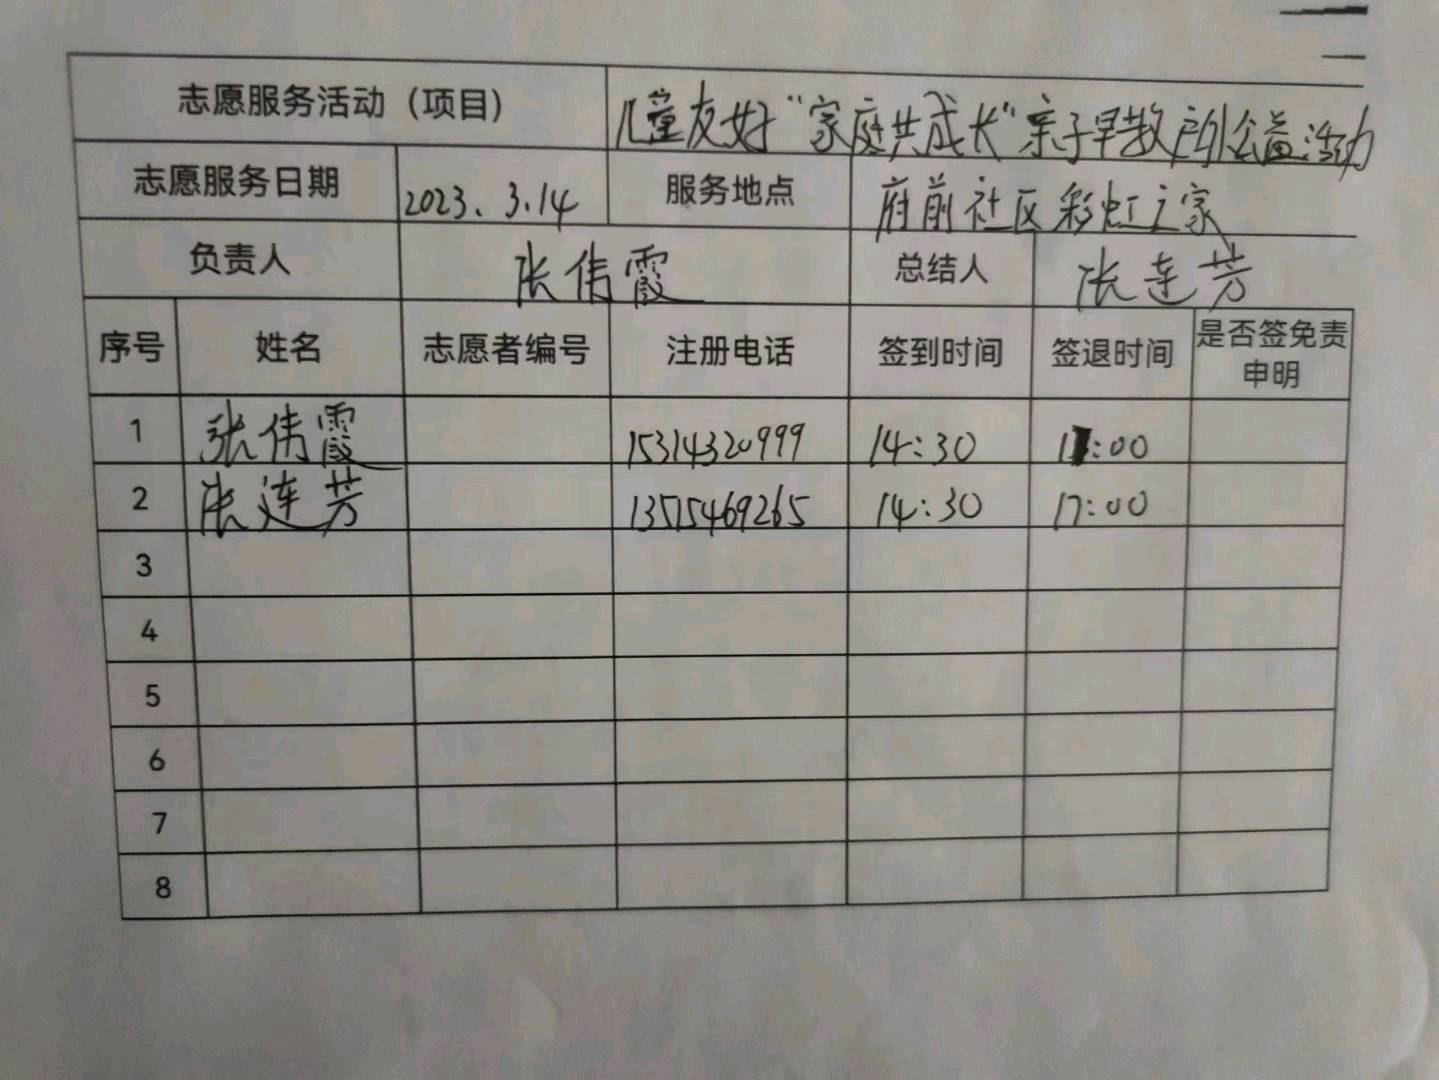 志愿服务活动（项目） 儿童友好“家庭共成长”亲子早教户外公益活动
志愿服务日期 2023.3.14 服务地点 府前社区彩虹之家
负责人 张伟霞 总结人 张连芳
序号 姓名 志愿者编号 注册电话 签到时间 签退时间 是否签免责申明
1 张伟霞 15314320999 14:30 :00
2 张连芳 13515469265 14:30 17:00
3
4
5
6
7
8